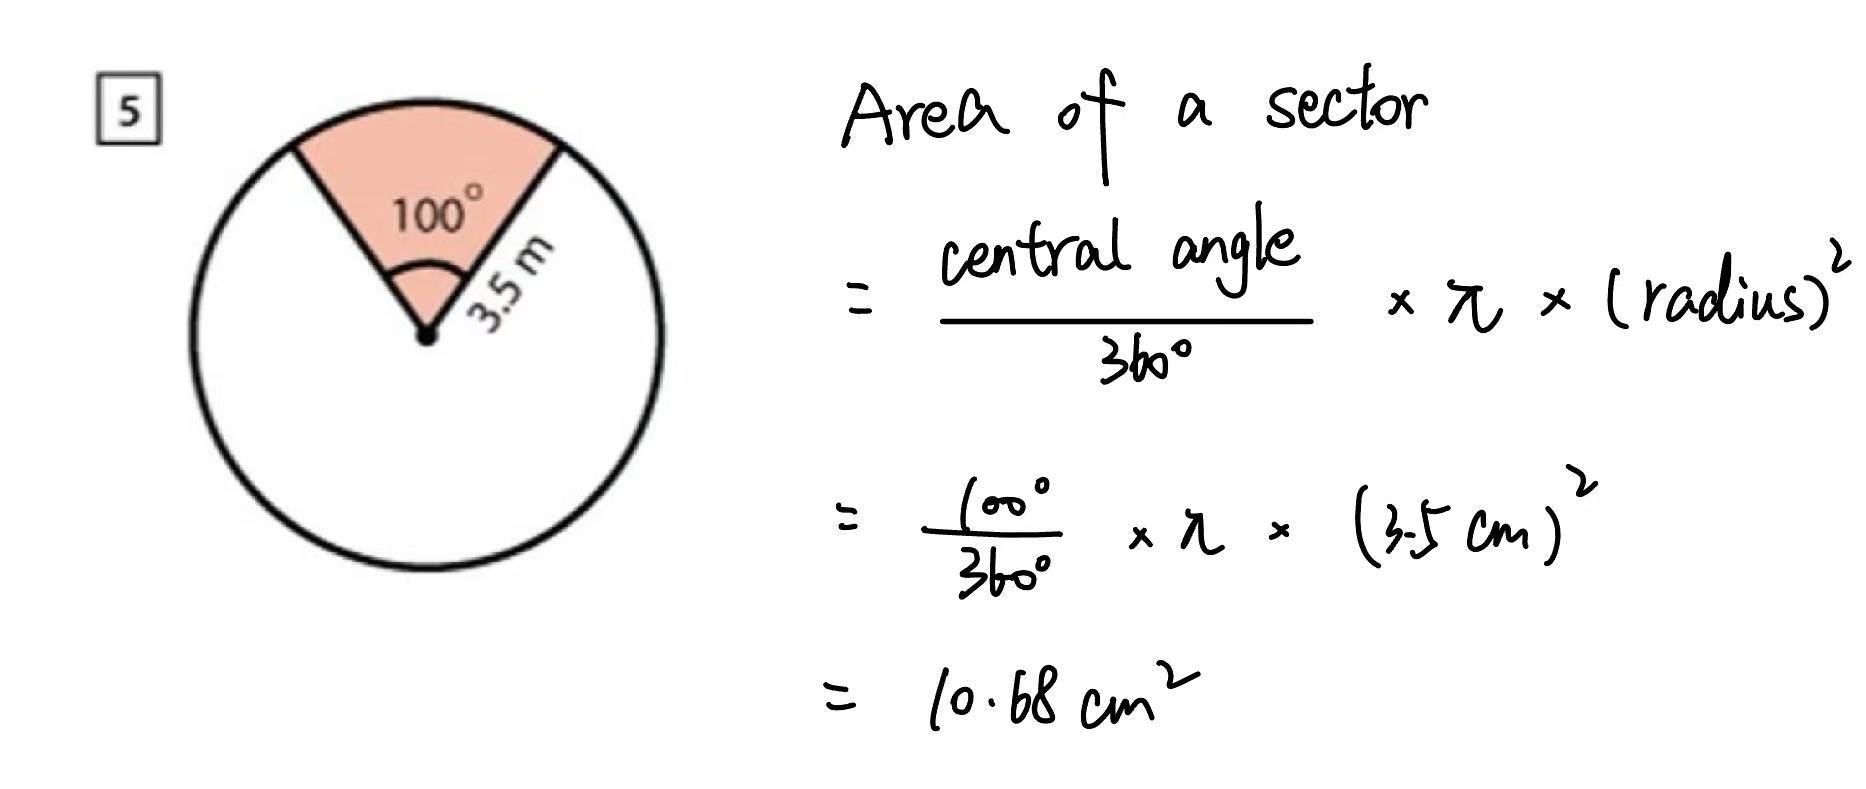 5
100°
3.5 m
Area of a sector
= central angle / 360° × π × (radius)²
= 100° / 360° × π × (3.5 cm)²
= 10.68 cm²